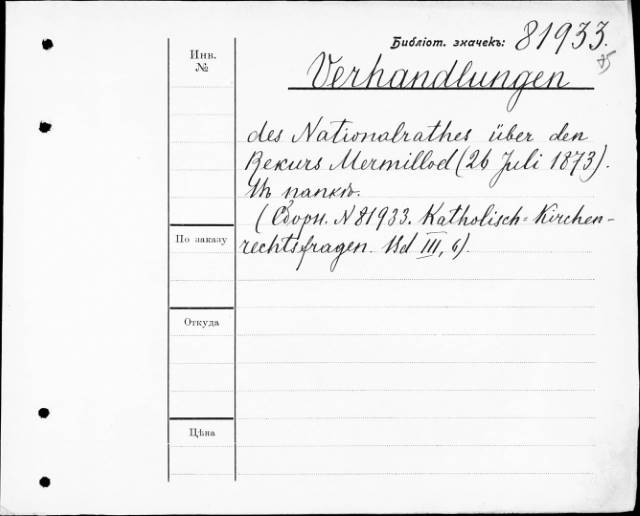 Библіот. значекъ: 81933.
75
Инв.
№
Verhandlungen
des Nationalrathes über den
Rekurs Mermillod (26 Juli 1873).
Въ папкѣ.
(Сборн. N 81933. Katholisch-Kirchen-
rechtsfragen. Bd III, 6).
По заказу
Откуда
Цѣна